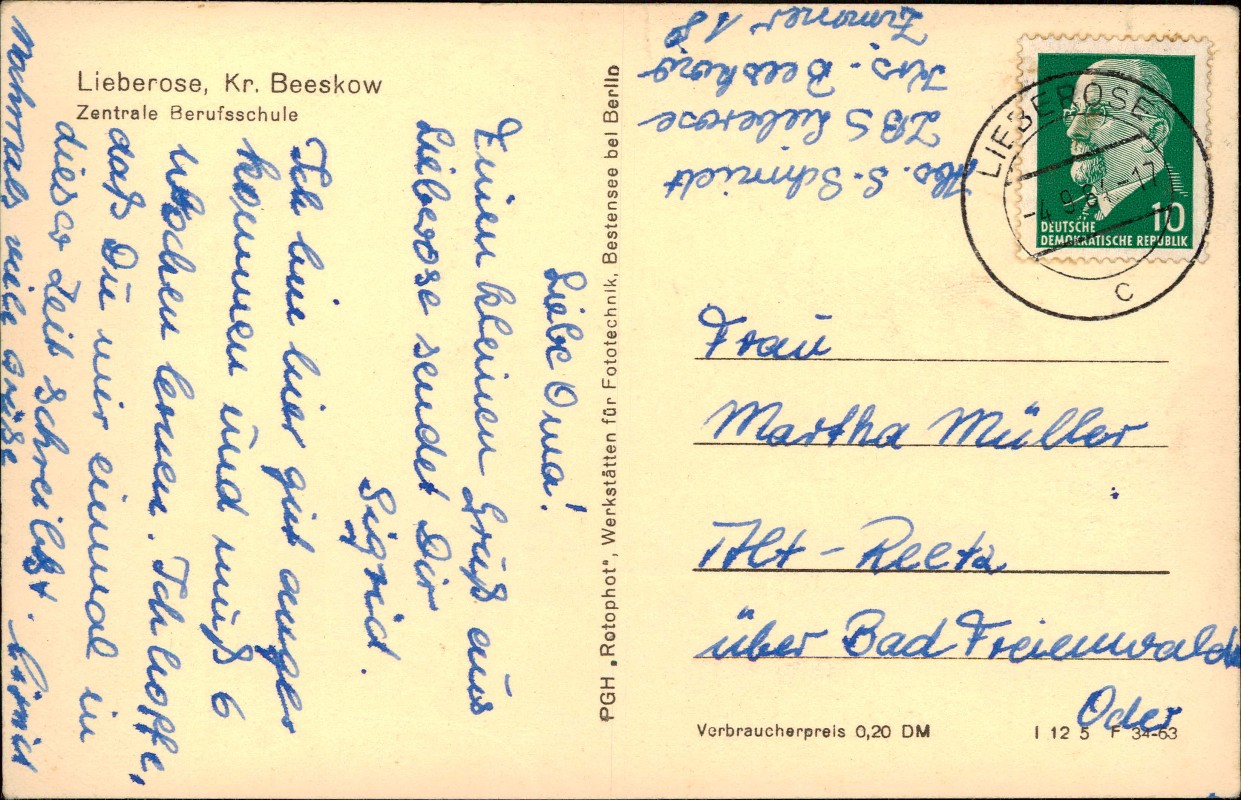 Lieberose, Kr. Beeskow
Zentrale Berufsschule
Liebe Oma!
Einen kleinen Gruß aus
Lieberose sendet Dir
Sigrid.
Ich bin hier gut ange
kommen und muß 6
Wochen lernen. Ich hoffe,
daß Du mir einmal in
dieser Zeit schreibst.
Nochmals viele Grüße
PGH „Rotophot", Werkstätten für Fototechnik, Bestensee bei Berlin
Abs. S. Schmidt
ZBS Lieberose
Krs. Beeskow
Zimmer 18
LIEBEROSE
-4.9.64-17
C
10
DEUTSCHE
DEMOKRATISCHE REPUBLIK
Frau
Martha Müller
Alt-Reetz
über Bad Freienwalde
Oder
Verbraucherpreis 0,20 DM
I 12 5 F 34-63